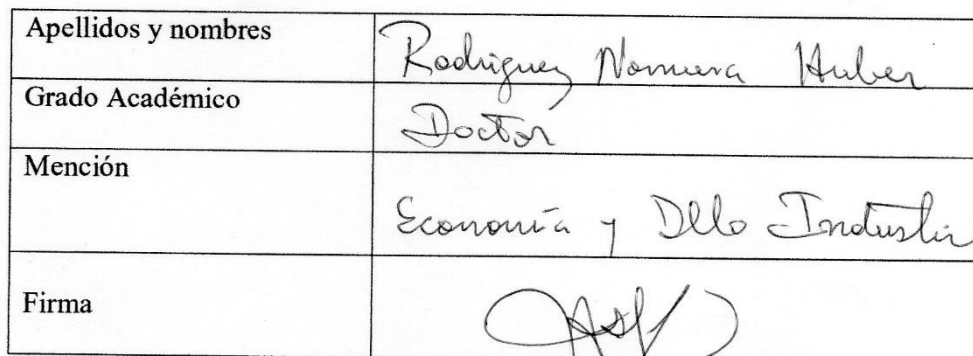 Apellidos y nombres
Rodriguez Nomura Huber
Grado Académico
Doctor
Mención
Economía y Dllo Industri
Firma